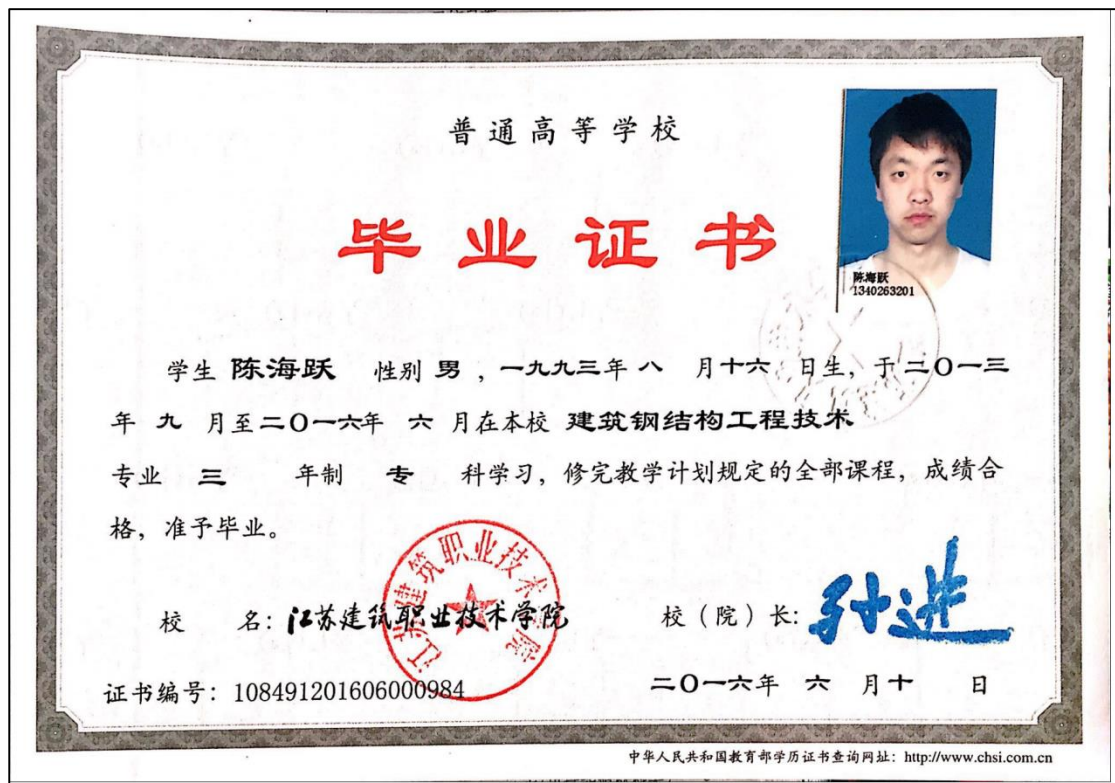 普通高等学校
毕业证书
陈海跃
1340263201
学生 陈海跃 性别 男 ，一九九三年 八 月十六 日生，于二〇一三
年 九 月至二〇一六年 六 月在本校 建筑钢结构工程技术
专业 三 年制 专 科学习，修完教学计划规定的全部课程，成绩合
格，准予毕业。
江苏建筑职业技术学院
校 名：江苏建筑职业技术学院
校（院）长：孙进
证书编号：108491201606000984
二〇一六年 六 月十 日
中华人民共和国教育部学历证书查询网址：http://www.chsi.com.cn